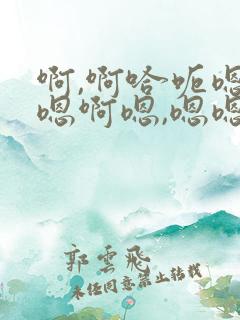 啊,啊哈呃嗯
嗯啊嗯,嗯嗯
郭雲飛
未经同意禁止转载